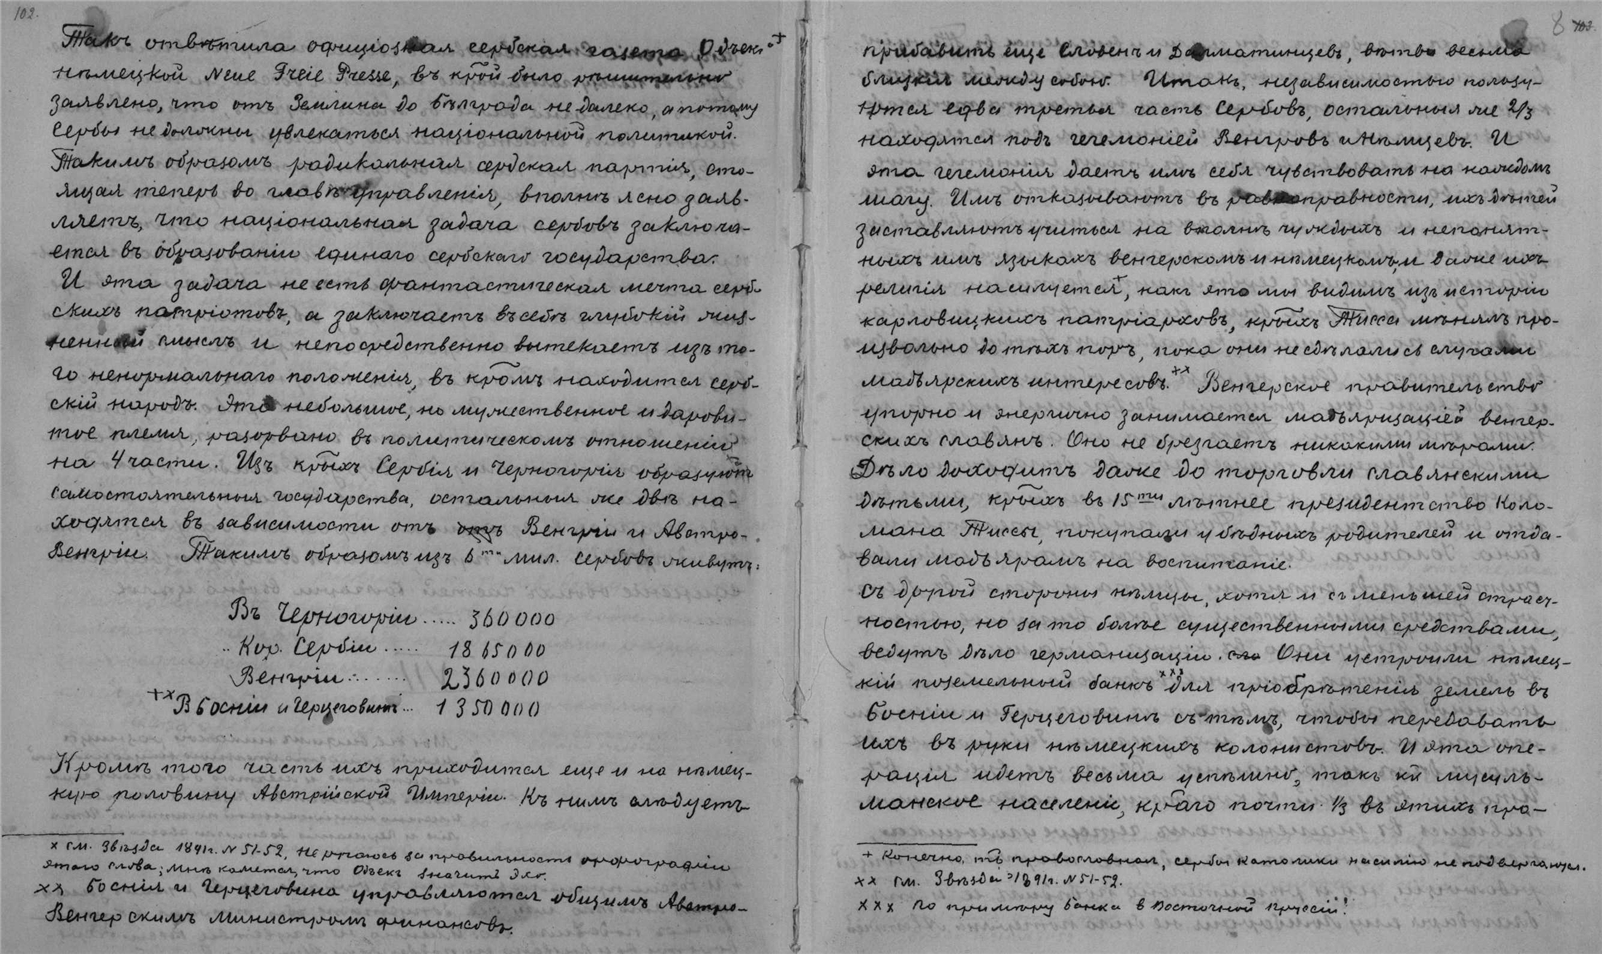 102.
Такъ отвѣтила офиціозная сербская газета Одъекъ +
нѣмецкой Neue Freie Presse, въ крой было рѣшительно
заявлено, что отъ Землина до Бѣлграда недалеко, а потому
Сербы не должны увлекаться національной политикой.
Такимъ образомъ радикальная сербская партія, сто-
ящая теперь во главѣ управленія, вполнѣ ясно заяв-
ляетъ, что національная задача сербовъ заключа-
ется въ образованіи единаго сербскаго государства.
И эта задача не есть фантастическая мечта серб-
скихъ патріотовъ, а заключаетъ въ себѣ глубокій жиз-
ненный смыслъ и непосредственно вытекаетъ изъ то-
го ненормальнаго положенія, въ кромъ находится серб-
скій народъ. Это небольшое, но мужественное и дарови-
тое племя, разорвано въ политическомъ отношеніи
на 4 части. Изъ крыхъ Сербія и Черногорія образуютъ
самостоятельныя государства, остальныя же двѣ на-
ходятся въ зависимости отъ отъ Венгріи и Австро-
Венгріи. Такимъ образомъ изъ 6ти мил. сербовъ живутъ:
Въ Черногоріи ..... 360000
.. Кор. Сербіи ..... 1865000
Венгріи ....... 2360000
++ В Босніи и Герцеговинѣ ... 1350000
Кромѣ того часть ихъ приходится еще и на нѣмец-
кую половину Австрійской Имперіи. Къ нимъ слѣдуетъ
x См. Звѣзда 1891г. N 51-52. Не ручаюсь за правильность орфографіи
этого слова; мнѣ кажется, что Одъекъ значитъ Эхо.
xx Боснія и Герцеговина управляются общимъ Австро-
Венгерскимъ министромъ финансовъ.
8 103.
прибавить еще Словенъ и Далматинцевъ, вѣтви весьма
близкія между собою. Итакъ, независимостью пользу-
ются едва третья часть Сербовъ, остальныя же 2/3
находятся подъ гегемоніей Венгровъ и Нѣмцевъ. И
эта гегемонія даетъ имъ себя чувствовать на каждомъ
шагу. Имъ отказываютъ въ равноправности, ихъ дѣтей
заставляютъ учиться на вполнѣ чуждыхъ и непонят-
ныхъ имъ языкахъ венгерскомъ и нѣмецкомъ, и даже ихъ
религія насилуется+, какъ это мы видимъ изъ исторіи
карловицкихъ патріарховъ, крыхъ Тисса мѣнялъ про-
извольно до тѣхъ поръ, пока они не сдѣлались слугами
мадьярскихъ интересовъ.++ Венгерское правительство
упорно и энергично занимается мадьяризаціей венгер-
скихъ славянъ. Оно не брезгаетъ никакими мѣрами.
Дѣло доходитъ даже до торговли славянскими
дѣтьми, крыхъ въ 15ти лѣтнее президентство Коло-
мана Тиссы, покупали у бѣдныхъ родителей и отда-
вали мадьярамъ на воспитаніе.
Съ другой стороны нѣмцы, хотя и съ меньшей страст-
ностью, но за то болѣе существенными средствами,
ведутъ дѣло германизаціи. Они устроили нѣмец-
кій поземельный банкъ xxx для пріобрѣтенія земель въ
Босніи и Герцеговинѣ съ тѣмъ, чтобы передавать
ихъ въ руки нѣмецкихъ колонистовъ. И эта опе-
рація идетъ весьма успѣшно, такъ кк мусуль-
манское населеніе, крого почти 1/3 въ этихъ про-
+ Конечно, тѣ православная, сербы католики насилію не подвергаются.
xx См. Звѣзда 1891г. N 51-52.
xxx По примѣру банка в Восточной Пруссіи!